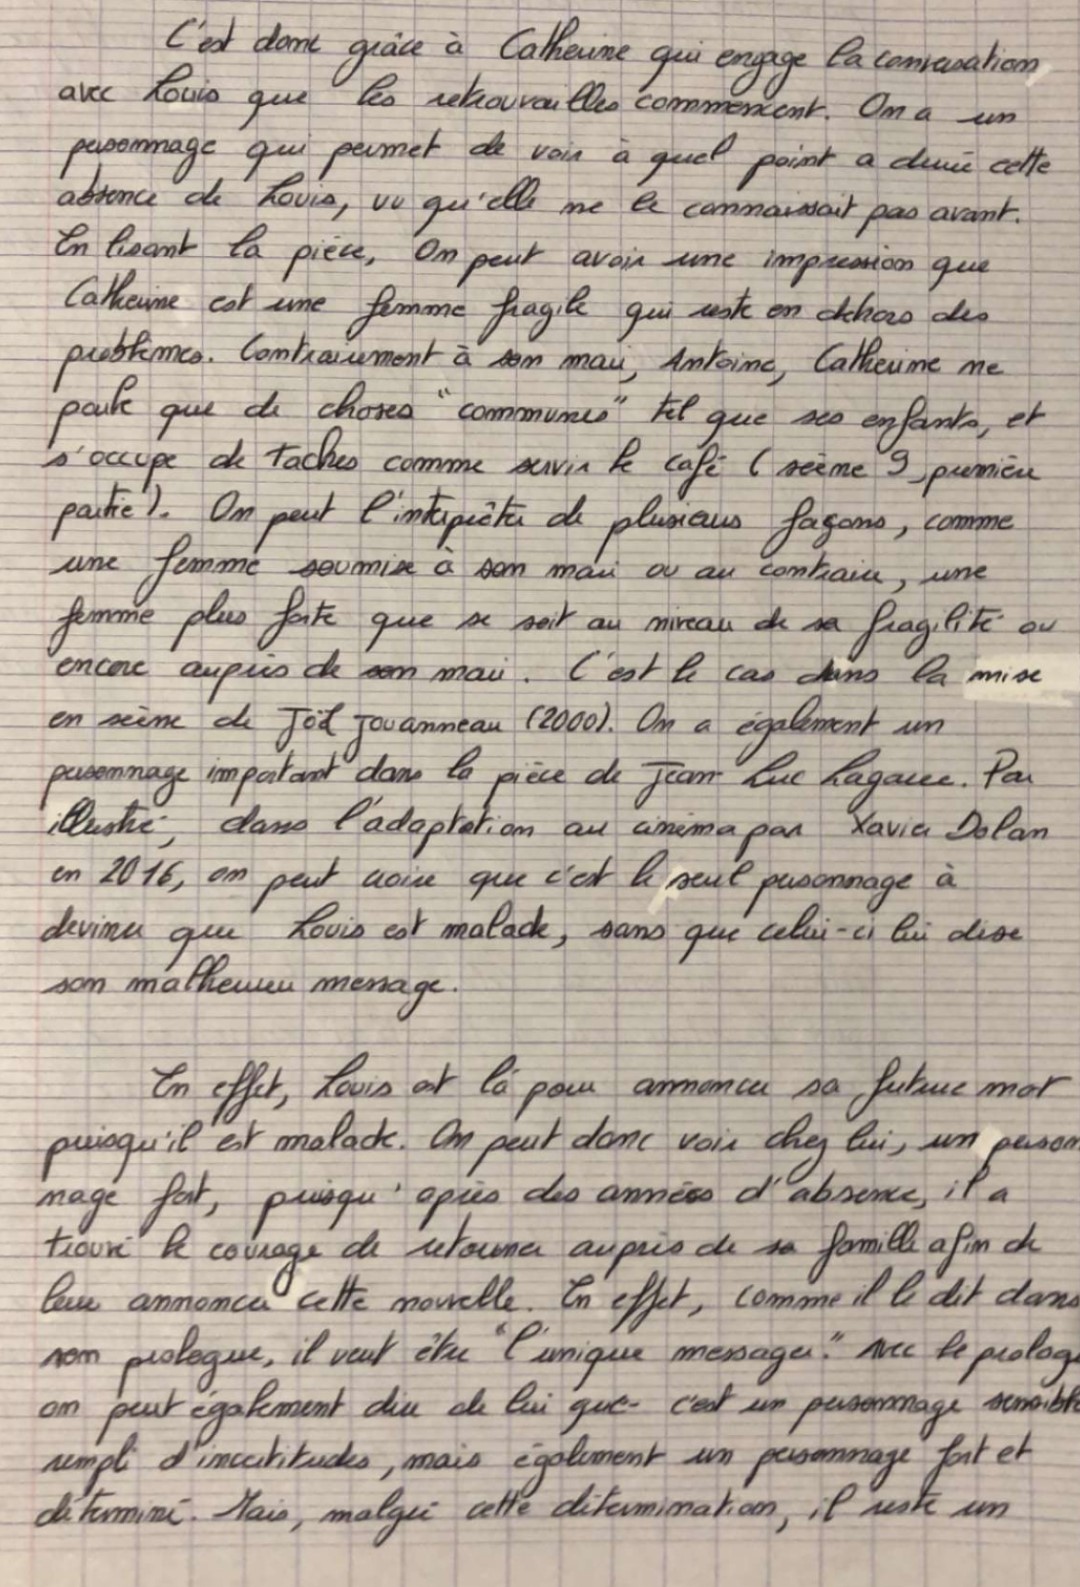 C'est donc grâce à Catherine qui engage la conversation
avec Louis que les retrouvailles commencent. On a un
personnage qui permet de voir à quel point a duré cette
absence de Louis, vu qu'elle ne le connaissait pas avant.
En lisant la pièce, On peut avoir une impression que
Catherine est une femme fragile qui reste en dehors des
problèmes. Contrairement à son mari, Antoine, Catherine ne
parle que de choses "communes" tel que ses enfants, et
s'occupe de taches comme servir le café (scème 9, première
partie). On peut l'interpréter de plusieurs façons, comme
une femme soumise à son mari ou au contraire, une
femme plus forte que se soit au niveau de sa fragilité ou
encore auprès de son mari. C'est le cas dans la mise
en scène de Joël Jouanneau (2000). On a également un
personnage important dans la pièce de Jean Luc Lagarce. Par
illustré, dans l'adaptation au cinéma par Xavier Dolan
en 2016, on peut croire que c'est le seul personnage à
deviner que Louis est malade, sans que celui-ci lui dise
son malheureu message.
En effet, Louis est là pour annoncer sa future mort
puisqu'il est malade. On peut donc voir chez lui, un person
nage fort, puisqu'après des années d'absence, il a
trouvé le courage de retourner auprès de sa famille afin de
leur annoncer cette nouvelle. En effet, comme il le dit dans
son prologue, il veut être "l'unique messager". Avec le prolog
on peut également dire de lui que c'est un personnage sensible
rempli d'incertitudes, mais également un personnage fort et
déterminé. Mais, malgré cette détermination, il reste un